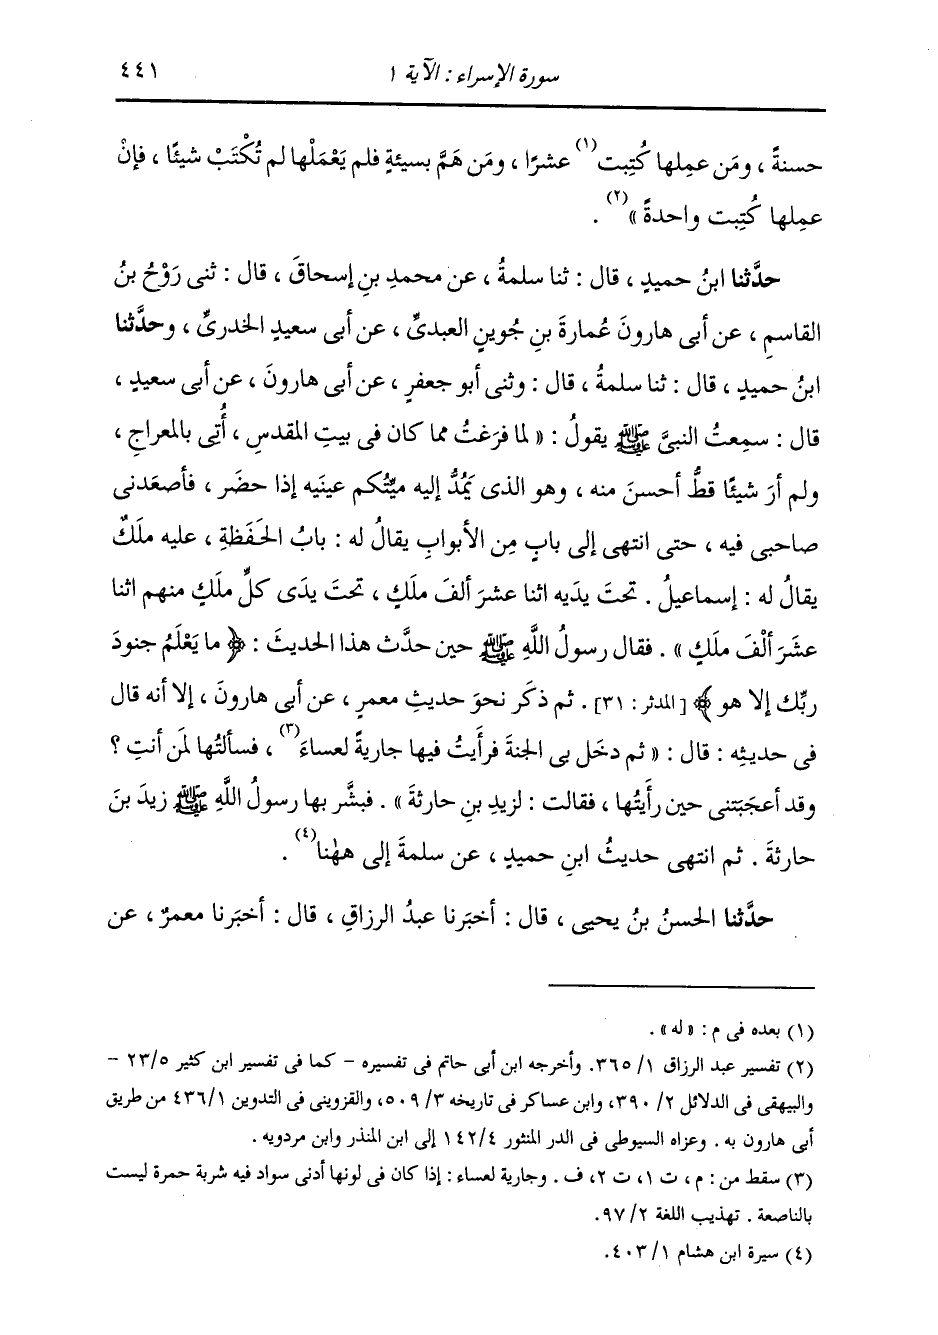 سورة الإسراء : الآية ١
٤٤١
حسنةً ، ومَن عمِلها كُتِبت(١) عشرًا ، ومَن هَمَّ بسيئةٍ فلم يَعْمَلْها لم تُكْتَبْ شيئًا ، فإنْ
عمِلها كُتِبت واحدةً »(٢) .
حدَّثنا ابنُ حميدٍ ، قال : ثنا سلمةُ ، عن محمدِ بنِ إسحاقَ ، قال : ثنى رَوْحُ بنُ
القاسمِ ، عن أبى هارونَ عُمارةَ بنِ جُوينٍ العبدىِّ ، عن أبى سعيدٍ الخدرىِّ ، وحدَّثنا
ابنُ حميدٍ ، قال : ثنا سلمةُ ، قال : وثنى أبو جعفرٍ ، عن أبى هارونَ ، عن أبى سعيدٍ ،
قال : سمِعتُ النبىَّ ﷺ يقولُ : « لما فرَغتُ مما كان فى بيتِ المقدسِ ، أُتِى بالمعراجِ ،
ولم أرَ شيئًا قطُّ أحسنَ منه ، وهو الذى يَمُدُّ إليه ميِّتُكم عينَيه إذا حضَر ، فأصعَدنى
صاحبى فيه ، حتى انتهى إلى بابٍ مِن الأبوابِ يقالُ له : بابُ الحَفَظةِ ، عليه ملَكٌ
يقالُ له : إسماعيلُ . تحتَ يدَيه اثنا عشرَ ألفَ ملَكٍ ، تحتَ يدَى كلِّ ملَكٍ منهم اثنا
عشَرَ ألْفَ ملَكٍ » . فقال رسولُ اللَّهِ ﷺ حين حدَّث هذا الحديثَ : ﴿ ما يَعْلَمُ جنودَ
ربِّك إلا هو ﴾ [ المدثر : ٣١] . ثم ذكَر نحوَ حديثِ معمرٍ ، عن أبى هارونَ ، إلا أنه قال
فى حديثِه : قال : « ثم دخَل بى الجنةَ فرأَيتُ فيها جاريةً لعساءَ(٣) ، فسألتُها لمَن أنتِ ؟
وقد أعجَبَتنى حين رأَيتُها ، فقالت : لزيدِ بنِ حارثةَ » . فبشَّر بها رسولُ اللَّهِ ﷺ زيدَ بنَ
حارثةَ . ثم انتهى حديثُ ابنِ حميدٍ ، عن سلمةَ إلى ههُنا(٤) .
حدَّثنا الحسنُ بنُ يحيى ، قال : أخبَرنا عبدُ الرزاقِ ، قال : أخبَرنا معمرٌ ، عن
(١) بعده فى م : « له » .
(٢) تفسير عبد الرزاق ١/ ٣٦٥. وأخرجه ابن أبى حاتم فى تفسيره – كما فى تفسير ابن كثير ٢٣/٥ –
والبيهقى فى الدلائل ٢/ ٣٩٠، وابن عساكر فى تاريخه ٣/ ٥٠٩، والقزوينى فى التدوين ٤٣٦/١ من طريق
أبى هارون به . وعزاه السيوطى فى الدر المنثور ١٤٢/٤ إلى ابن المنذر وابن مردويه .
(٣) سقط من : م ، ت ١، ت ٢، ف . وجارية لعساء : إذا كان فى لونها أدنى سواد فيه شربة حمرة ليست
بالناصعة . تهذيب اللغة ٢/ ٩٧.
(٤) سيرة ابن هشام ١/ ٤٠٣.